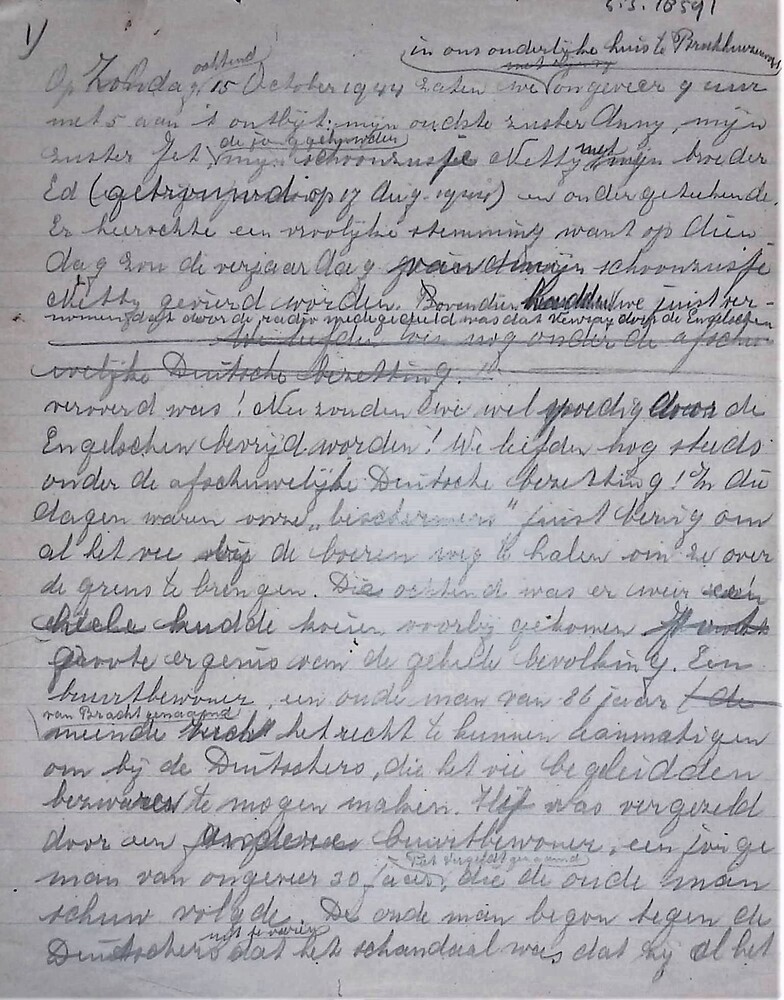 1)
5.3.1859 1
in ons ouderlijke huis te Broekhuizenvorst
ochtend
Op Zondag 15 October 1944 zaten we ongeveer 9 uur
met 5 aan 't ontbijt: mijn oudste zuster Anny, mijn
de jong gehuwden
zuster Jet, mijn schoonzusje Netty met mijn broeder
Ed (getrouwd op 17 Aug. 1944) en ondergetekende.
Er heerschte een vroolijke stemming want op dien
dag zou de verjaardag van mijn schoonzusje
Netty gevierd worden. Bovendien hadden we juist ver-
nomen dat door de radio medegedeeld was dat Venray door de Engelschen
We leefden nog onder de afschu-
welijke Duitsche bezetting.
veroverd was! Nu zouden we wel spoedig door de
Engelschen bevrijd worden! We leefden nog steeds
onder de afschuwelijke Duitsche bezetting! In die
dagen waren onze „beschermers" juist bezig om
al het vee bij de boeren weg te halen om ze over
de grens te brengen. Die ochtend was er weer een
heele kudde koeien voorbij gekomen
groote ergenis van de geheele bevolking. Een
buurtbewoner, een oude man van 86 jaar
van Bracht genaamd
meende zich het recht te kunnen aanmatigen
om bij de Duitschers, die het vee begeleidden
bezwaren te mogen maken. Hij was vergezeld
door een anderen buurtbewoner, een jonge
genaamd
man van ongeveer 30 jaar, die de oude man
schuw volgde. De oude man begon tegen de
Duitschers dat het schandaal was dat zij al het